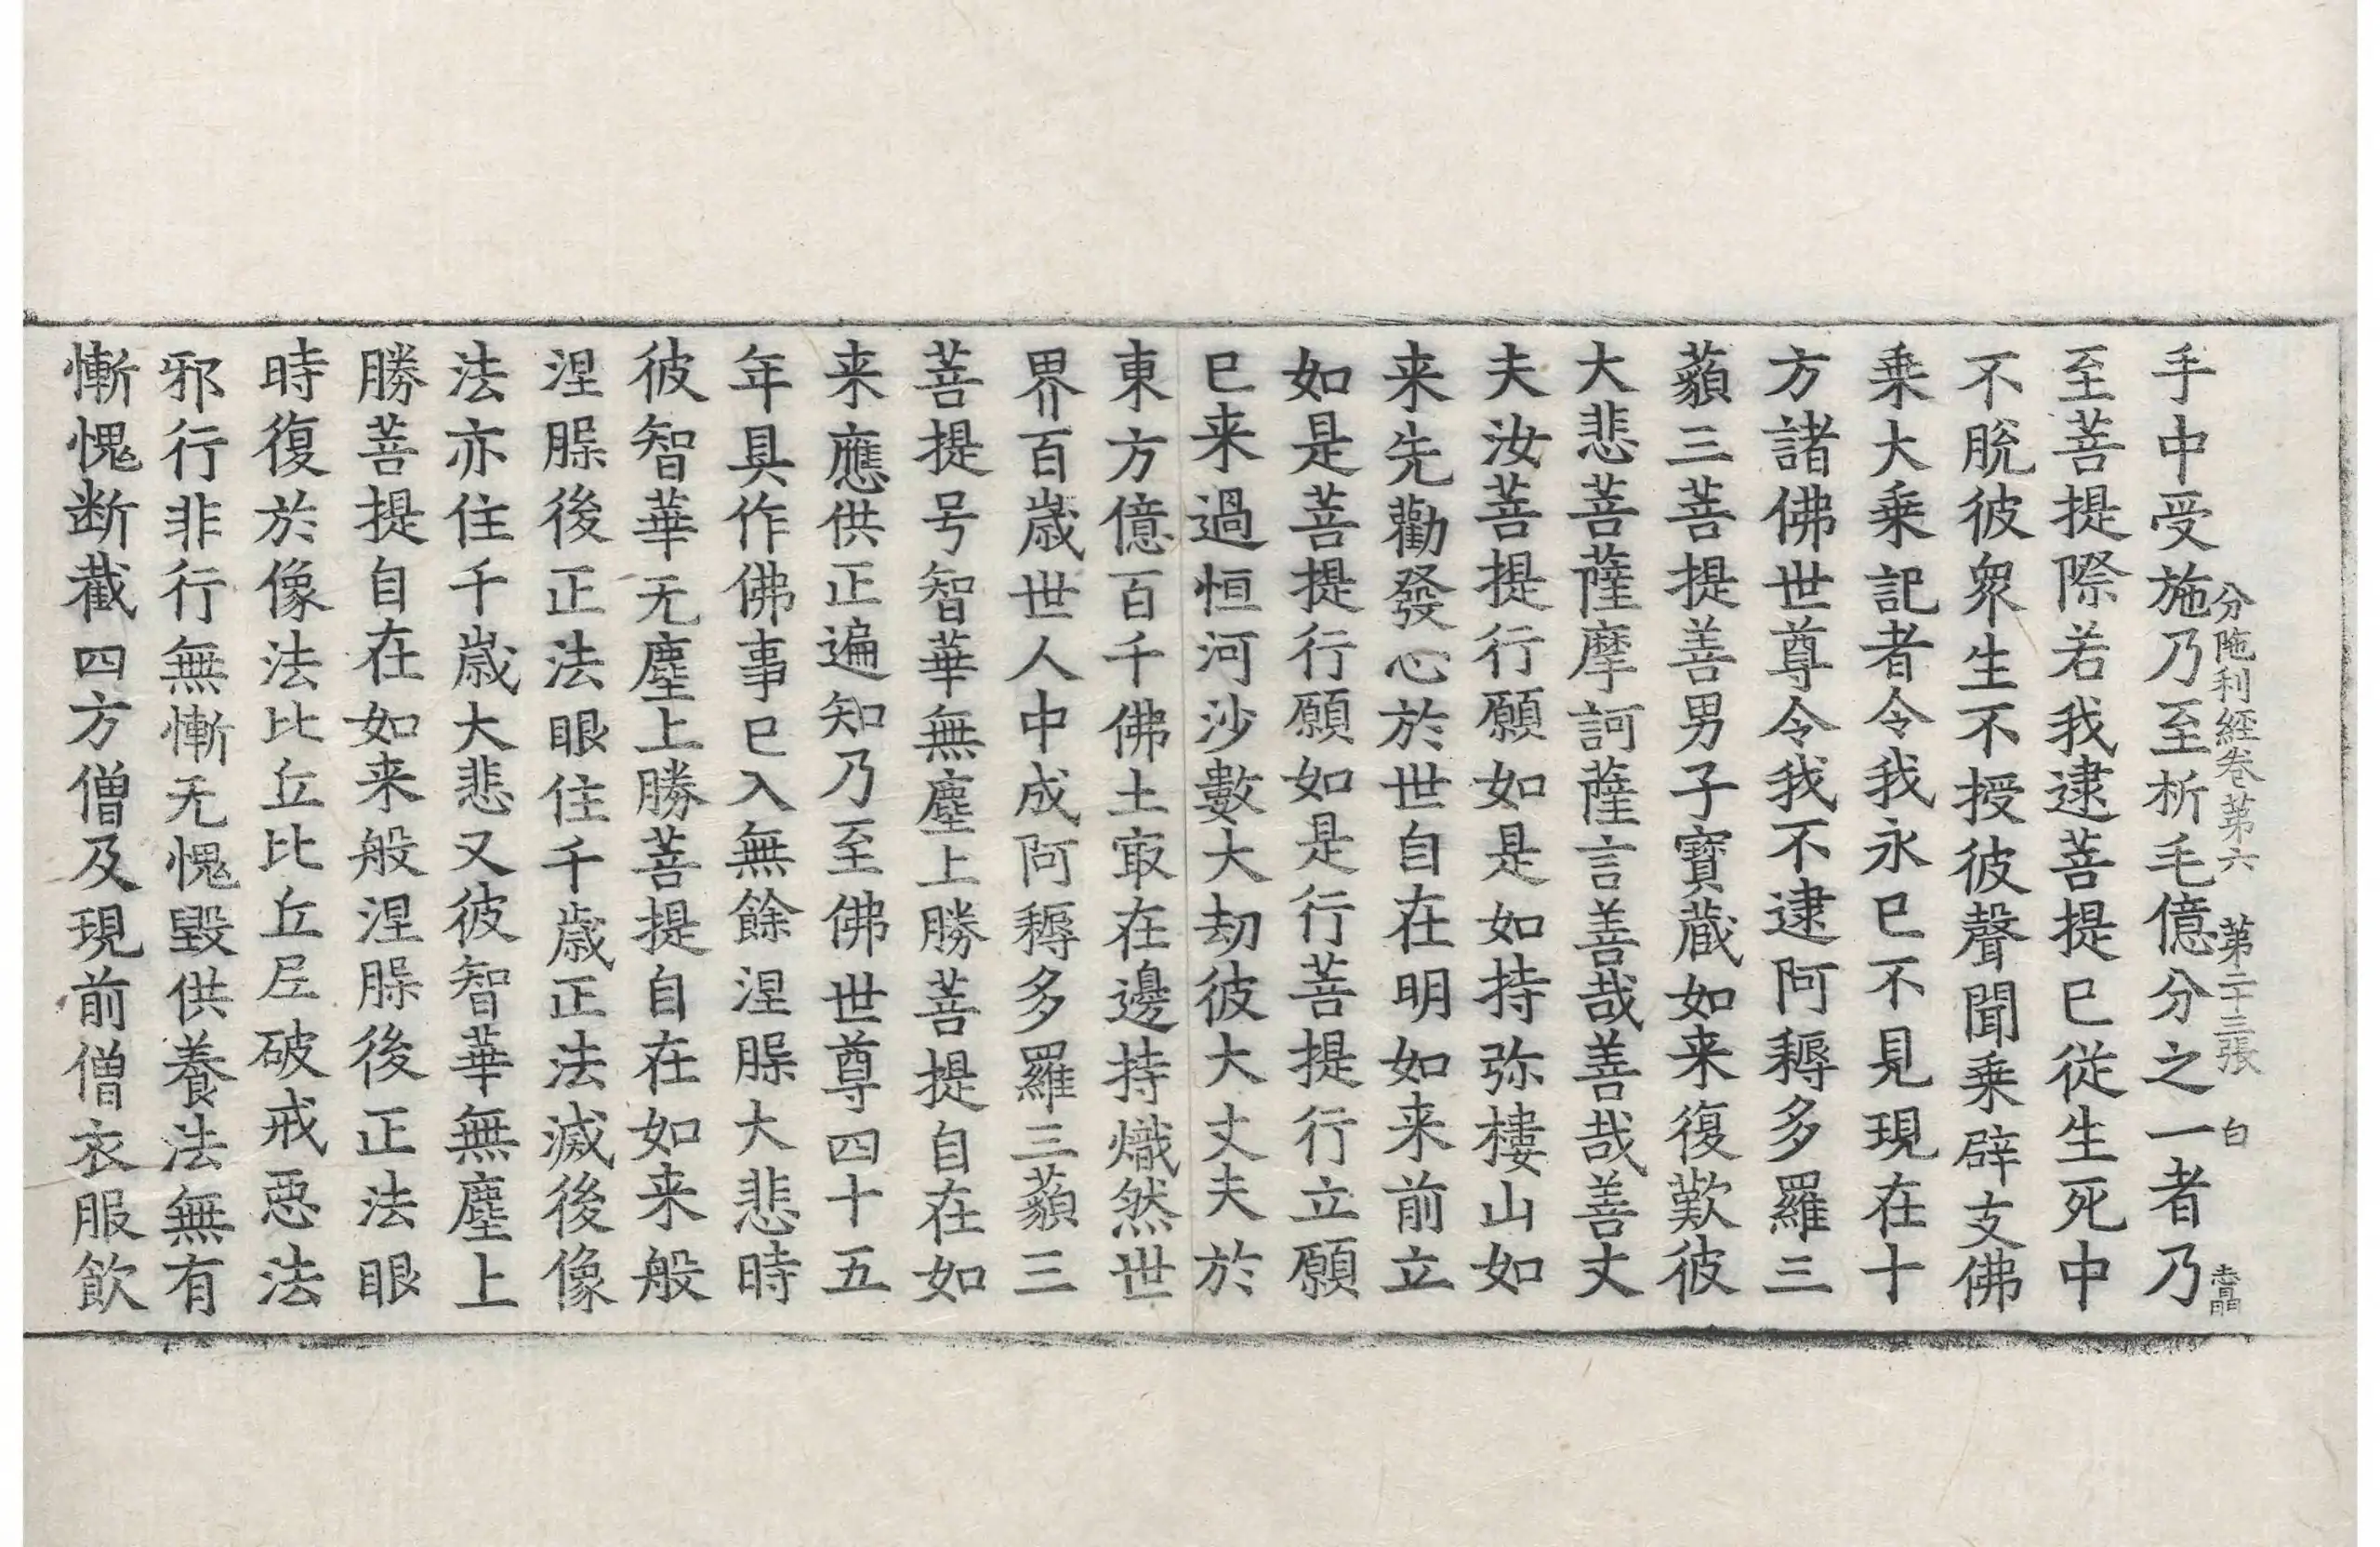 手中受施乃至析毛億分之一者乃
分陁利經卷第六　第二十三張　白
至菩提際若我逮菩提已從生死中
不脫彼衆生不授彼聲聞乗辟支佛
乗大乗記者令我永已不見現在十
方諸佛世尊令我不逮阿耨多羅三
藐三菩提善男子寶蔵如来復歎彼
大悲菩薩摩訶薩言善哉善哉善丈
夫汝菩提行願如是如持弥樓山如
来先勸發心於世自在明如来前立
如是菩提行願如是行菩提行立願
已来過恒河沙數大劫彼大丈夫於
東方億百千佛土㝡在邊持熾然世
界百歳世人中成阿耨多羅三藐三
菩提号智華無塵上勝菩提自在如
来應供正遍知乃至佛世尊四十五
年具作佛事已入無餘涅槃大悲時
彼智華无塵上勝菩提自在如来般
涅槃後正法眼住千歳正法滅後像
法亦住千歳大悲又彼智華無塵上
勝菩提自在如来般涅槃後正法眼
時復於像法比丘比丘尼破戒惡法
邪行非行無慚无愧毀供養法無有
慚愧断截四方僧及現前僧衣服飲